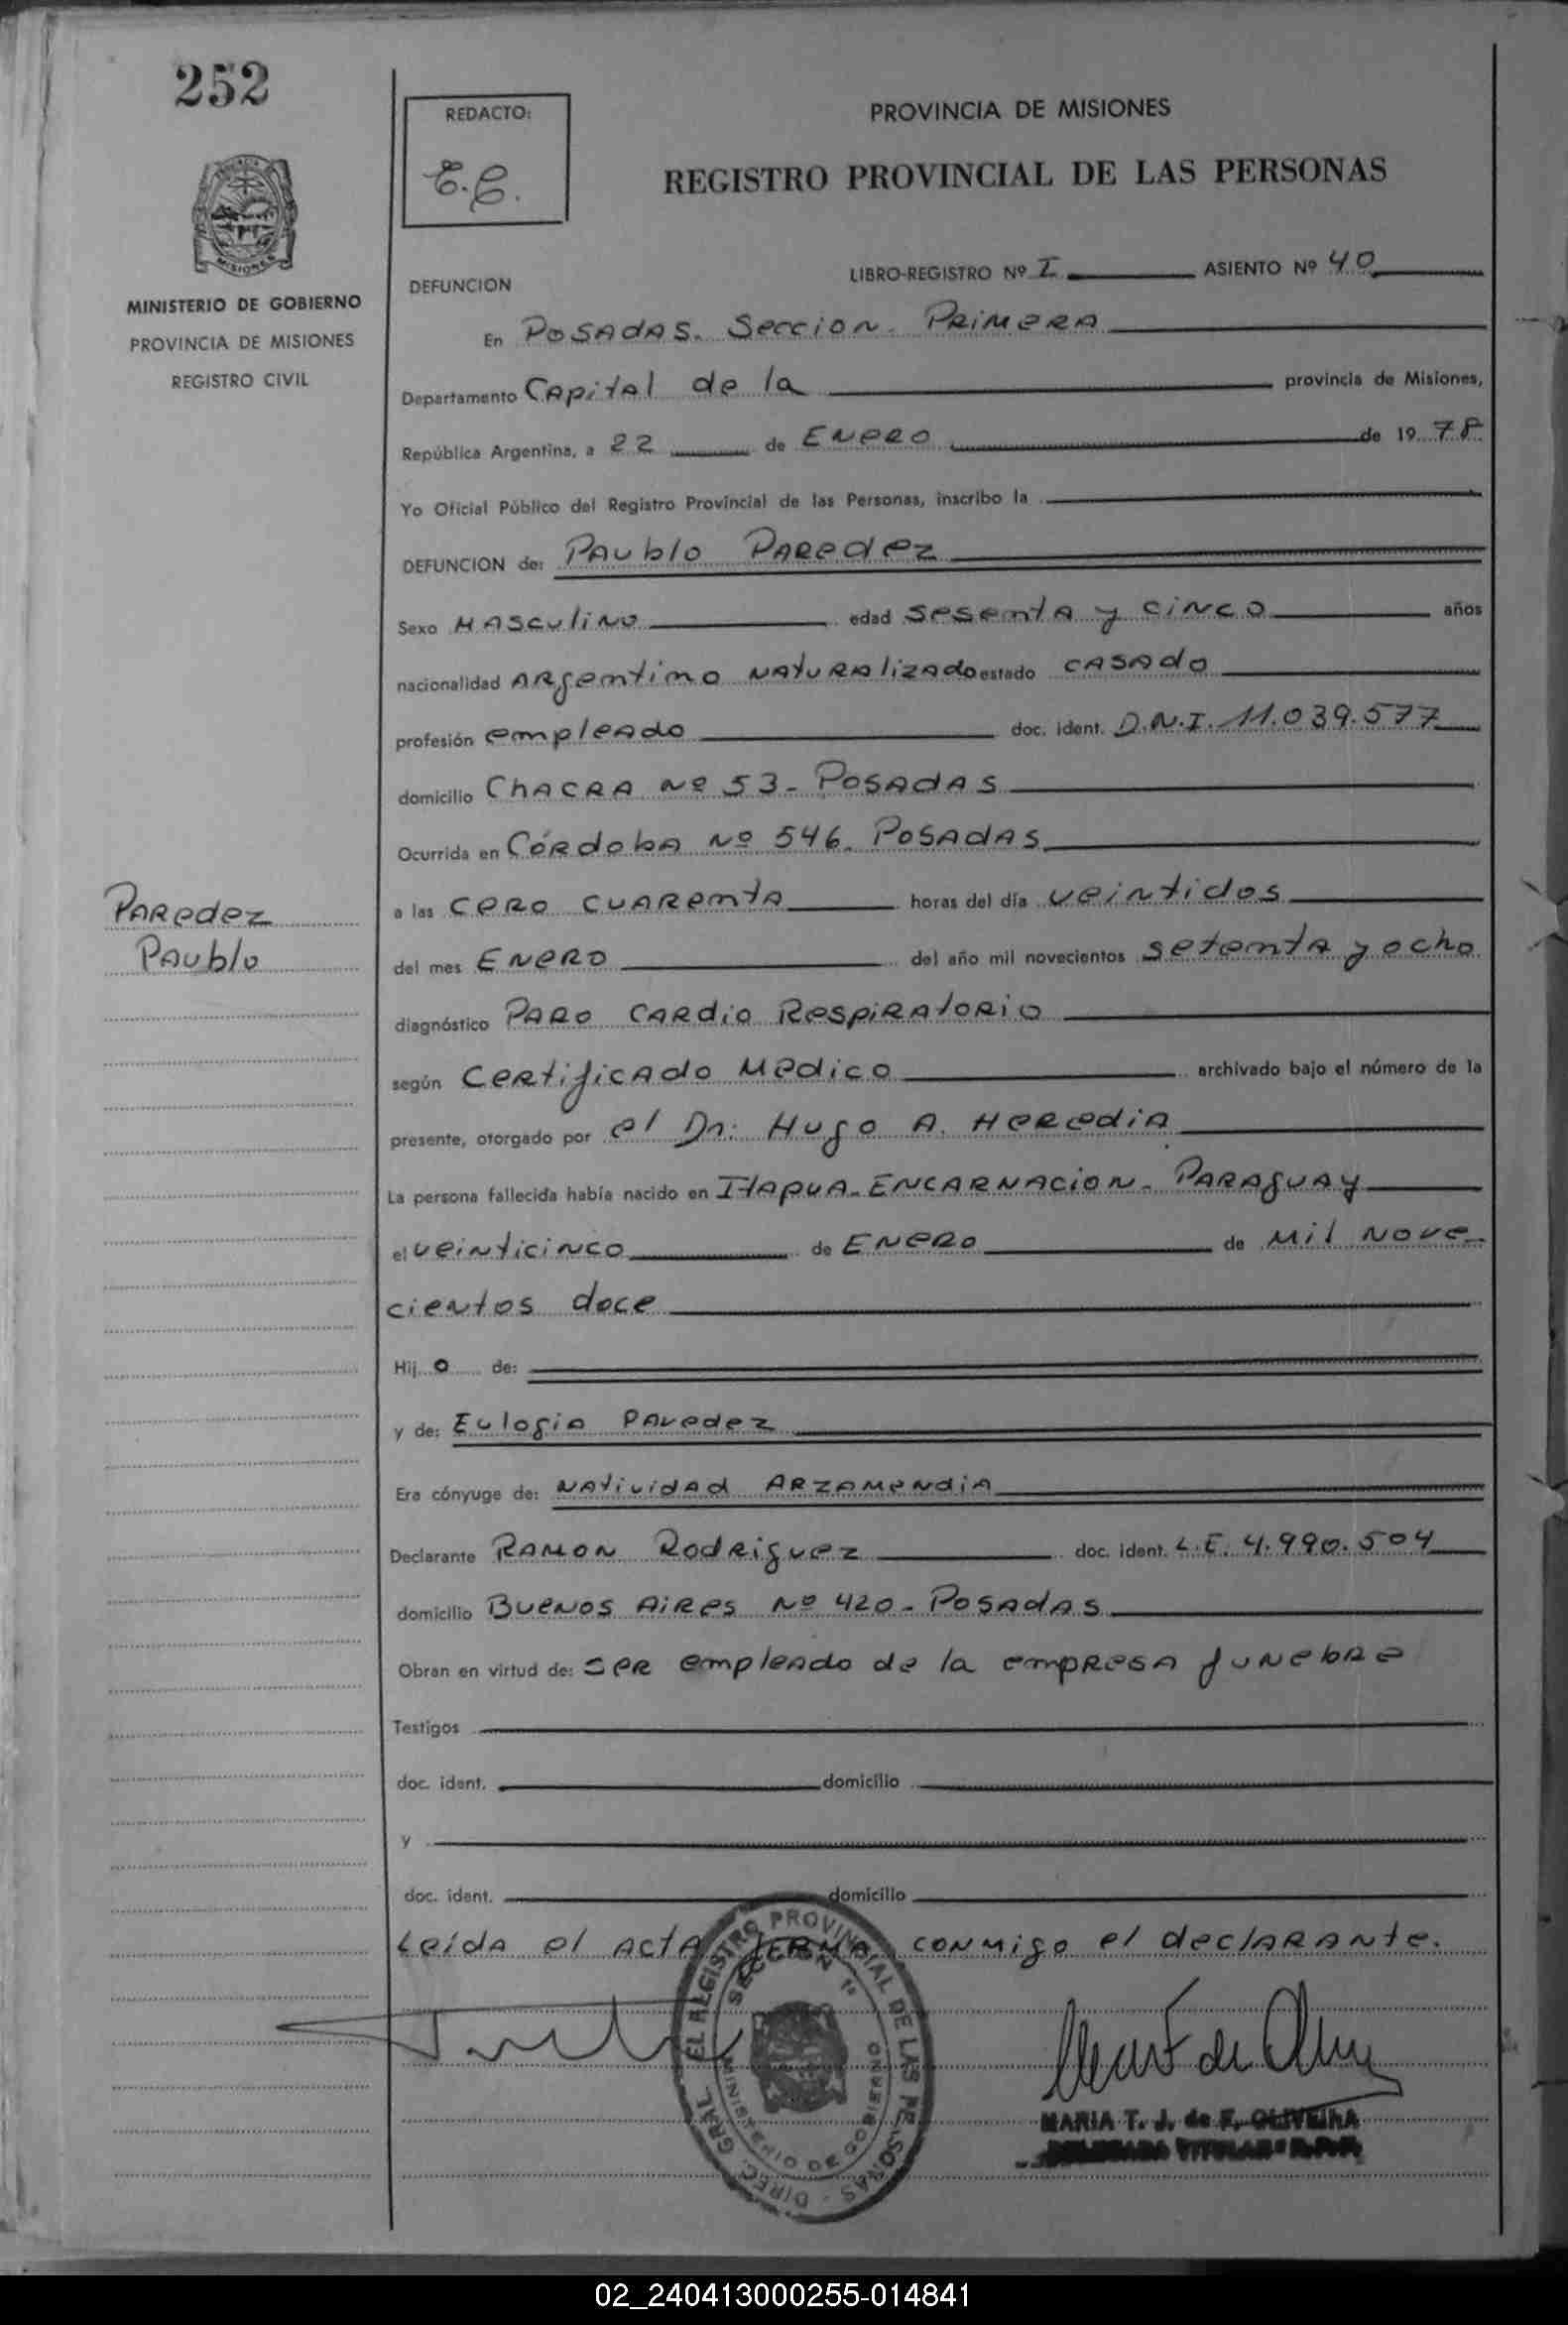 252
REDACTO:
PROVINCIA DE MISIONES
REGISTRO PROVINCIAL DE LAS PERSONAS
MISIONES
MINISTERIO DE GOBIERNO
PROVINCIA DE MISIONES
REGISTRO CIVIL
LIBRO-REGISTRO Nº I ASIENTO Nº 40
DEFUNCION
En POSADAS. SECCION. PRIMERA
Departamento CAPITAL de la provincia de Misiones,
República Argentina, a 22 de ENERO de 1978
Yo Oficial Público del Registro Provincial de las Personas, inscribo la
DEFUNCION de: PAUBLO PAREDEZ
Sexo MASCULINO edad SESENTA y CINCO años
nacionalidad ARGENTINO NATURALIZADO estado CASADO
profesión empleado doc. ident. D.N.I. 11.039.577
domicilio CHACRA Nº 53- POSADAS
Ocurrida en CÓRDOBA Nº 546. POSADAS
a las CERO CUARENTA horas del día veintidos
Paredez
Paublo
del mes ENERO del año mil novecientos setenta y ocho
diagnóstico PARO CARDIO RESPIRATORIO
según Certificado Medico archivado bajo el número de la
presente, otorgado por el Dr. Hugo A. HEREDIA
La persona fallecida había nacido en ITAPUA-ENCARNACION- PARAGUAY
el veinticinco de ENERO de Mil nove-
cientos doce
Hijo de:
y de: Eulogia Paredez
Era cónyuge de: NATIVIDAD ARZAMENDIA
Declarante RAMON RODRIGUEZ doc. ident. L.E. 4.990.504
domicilio BUENOS AIRES Nº 420- POSADAS
Obran en virtud de: SER empleado de la empresa funebre
Testigos
doc. ident. domicilio
y
doc. ident. domicilio
Leída el acta FIRMA conmigo el declarante.
DIREC. GRAL. EL REGISTRO PROVINCIAL DE LAS PERSONAS
SECCION 1ª
MINISTERIO DE GOBIERNO
MARIA T. J. de F. OLIVEIRA
DELEGADA TITULAR R.P.P.
02_240413000255-014841